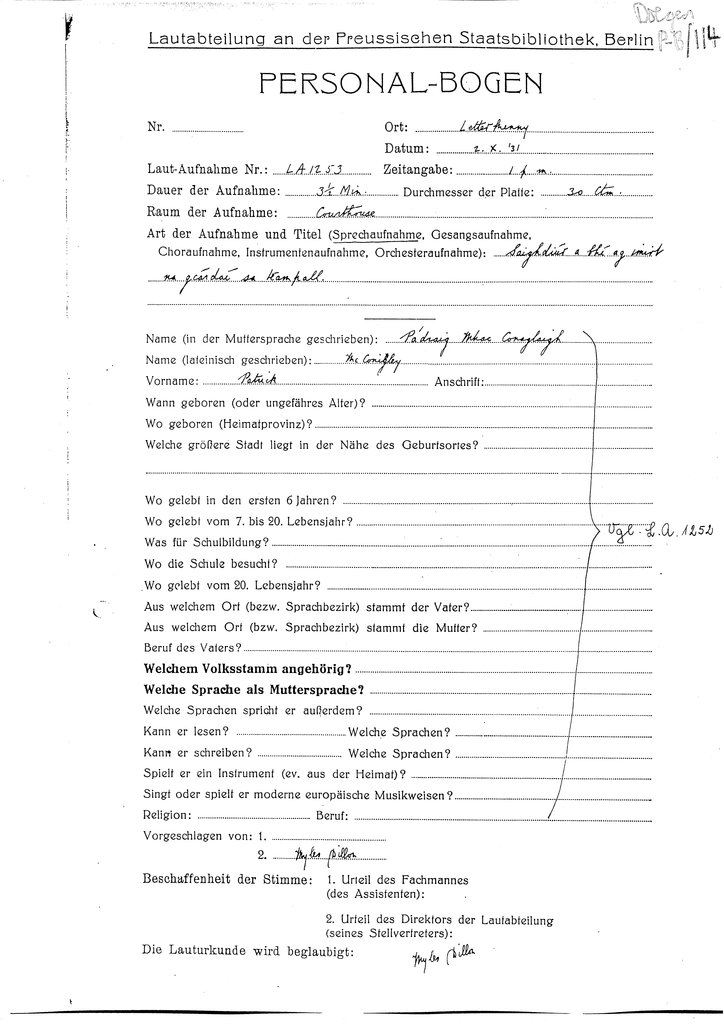 Doegen
Lautabteilung an der Preussischen Staatsbibliothek, Berlin P-B/114
PERSONAL-BOGEN
Nr. Ort: Letterkenny
Datum: 2. X. '31
Laut-Aufnahme Nr.: LA 1253 Zeitangabe: 1 p m.
Dauer der Aufnahme: 3½ Min. Durchmesser der Platte: 30 Ctm.
Raum der Aufnahme: Courthouse
Art der Aufnahme und Titel (Sprechaufnahme, Gesangsaufnahme,
Choraufnahme, Instrumentenaufnahme, Orchesteraufnahme): Saighdiúr a bhí ag imirt
na gcárdaí sa teampall.
Name (in der Muttersprache geschrieben): Pádraig Mhac Conaglaigh
Name (lateinisch geschrieben): Mc Conigley
Vorname: Patrick Anschrift:
Wann geboren (oder ungefähres Alter)?
Wo geboren (Heimatprovinz)?
Welche größere Stadt liegt in der Nähe des Geburtsortes?
Wo gelebt in den ersten 6 Jahren?
Wo gelebt vom 7. bis 20. Lebensjahr?
Vgl. L.A. 1252
Was für Schulbildung?
Wo die Schule besucht?
Wo gelebt vom 20. Lebensjahr?
Aus welchem Ort (bezw. Sprachbezirk) stammt der Vater?
Aus welchem Ort (bzw. Sprachbezirk) stammt die Mutter?
Beruf des Vaters?
Welchem Volksstamm angehörig?
Welche Sprache als Muttersprache?
Welche Sprachen spricht er außerdem?
Kann er lesen? Welche Sprachen?
Kann er schreiben? Welche Sprachen?
Spielt er ein Instrument (ev. aus der Heimat)?
Singt oder spielt er moderne europäische Musikweisen?
Religion: Beruf:
Vorgeschlagen von: 1.
2. Myles Dillon
Beschaffenheit der Stimme: 1. Urteil des Fachmannes
(des Assistenten):
2. Urteil des Direktors der Lautabteilung
(seines Stellvertreters):
Die Lauturkunde wird beglaubigt: Myles Dillon